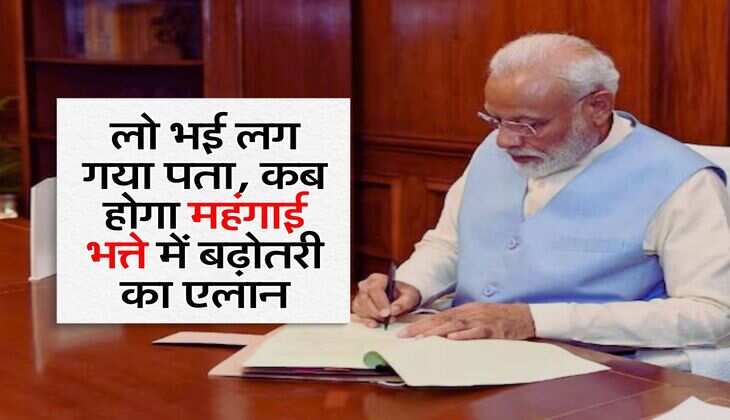 लो भई लग
गया पता, कब
होगा महंगाई
भत्ते में बढ़ोतरी
का एलान